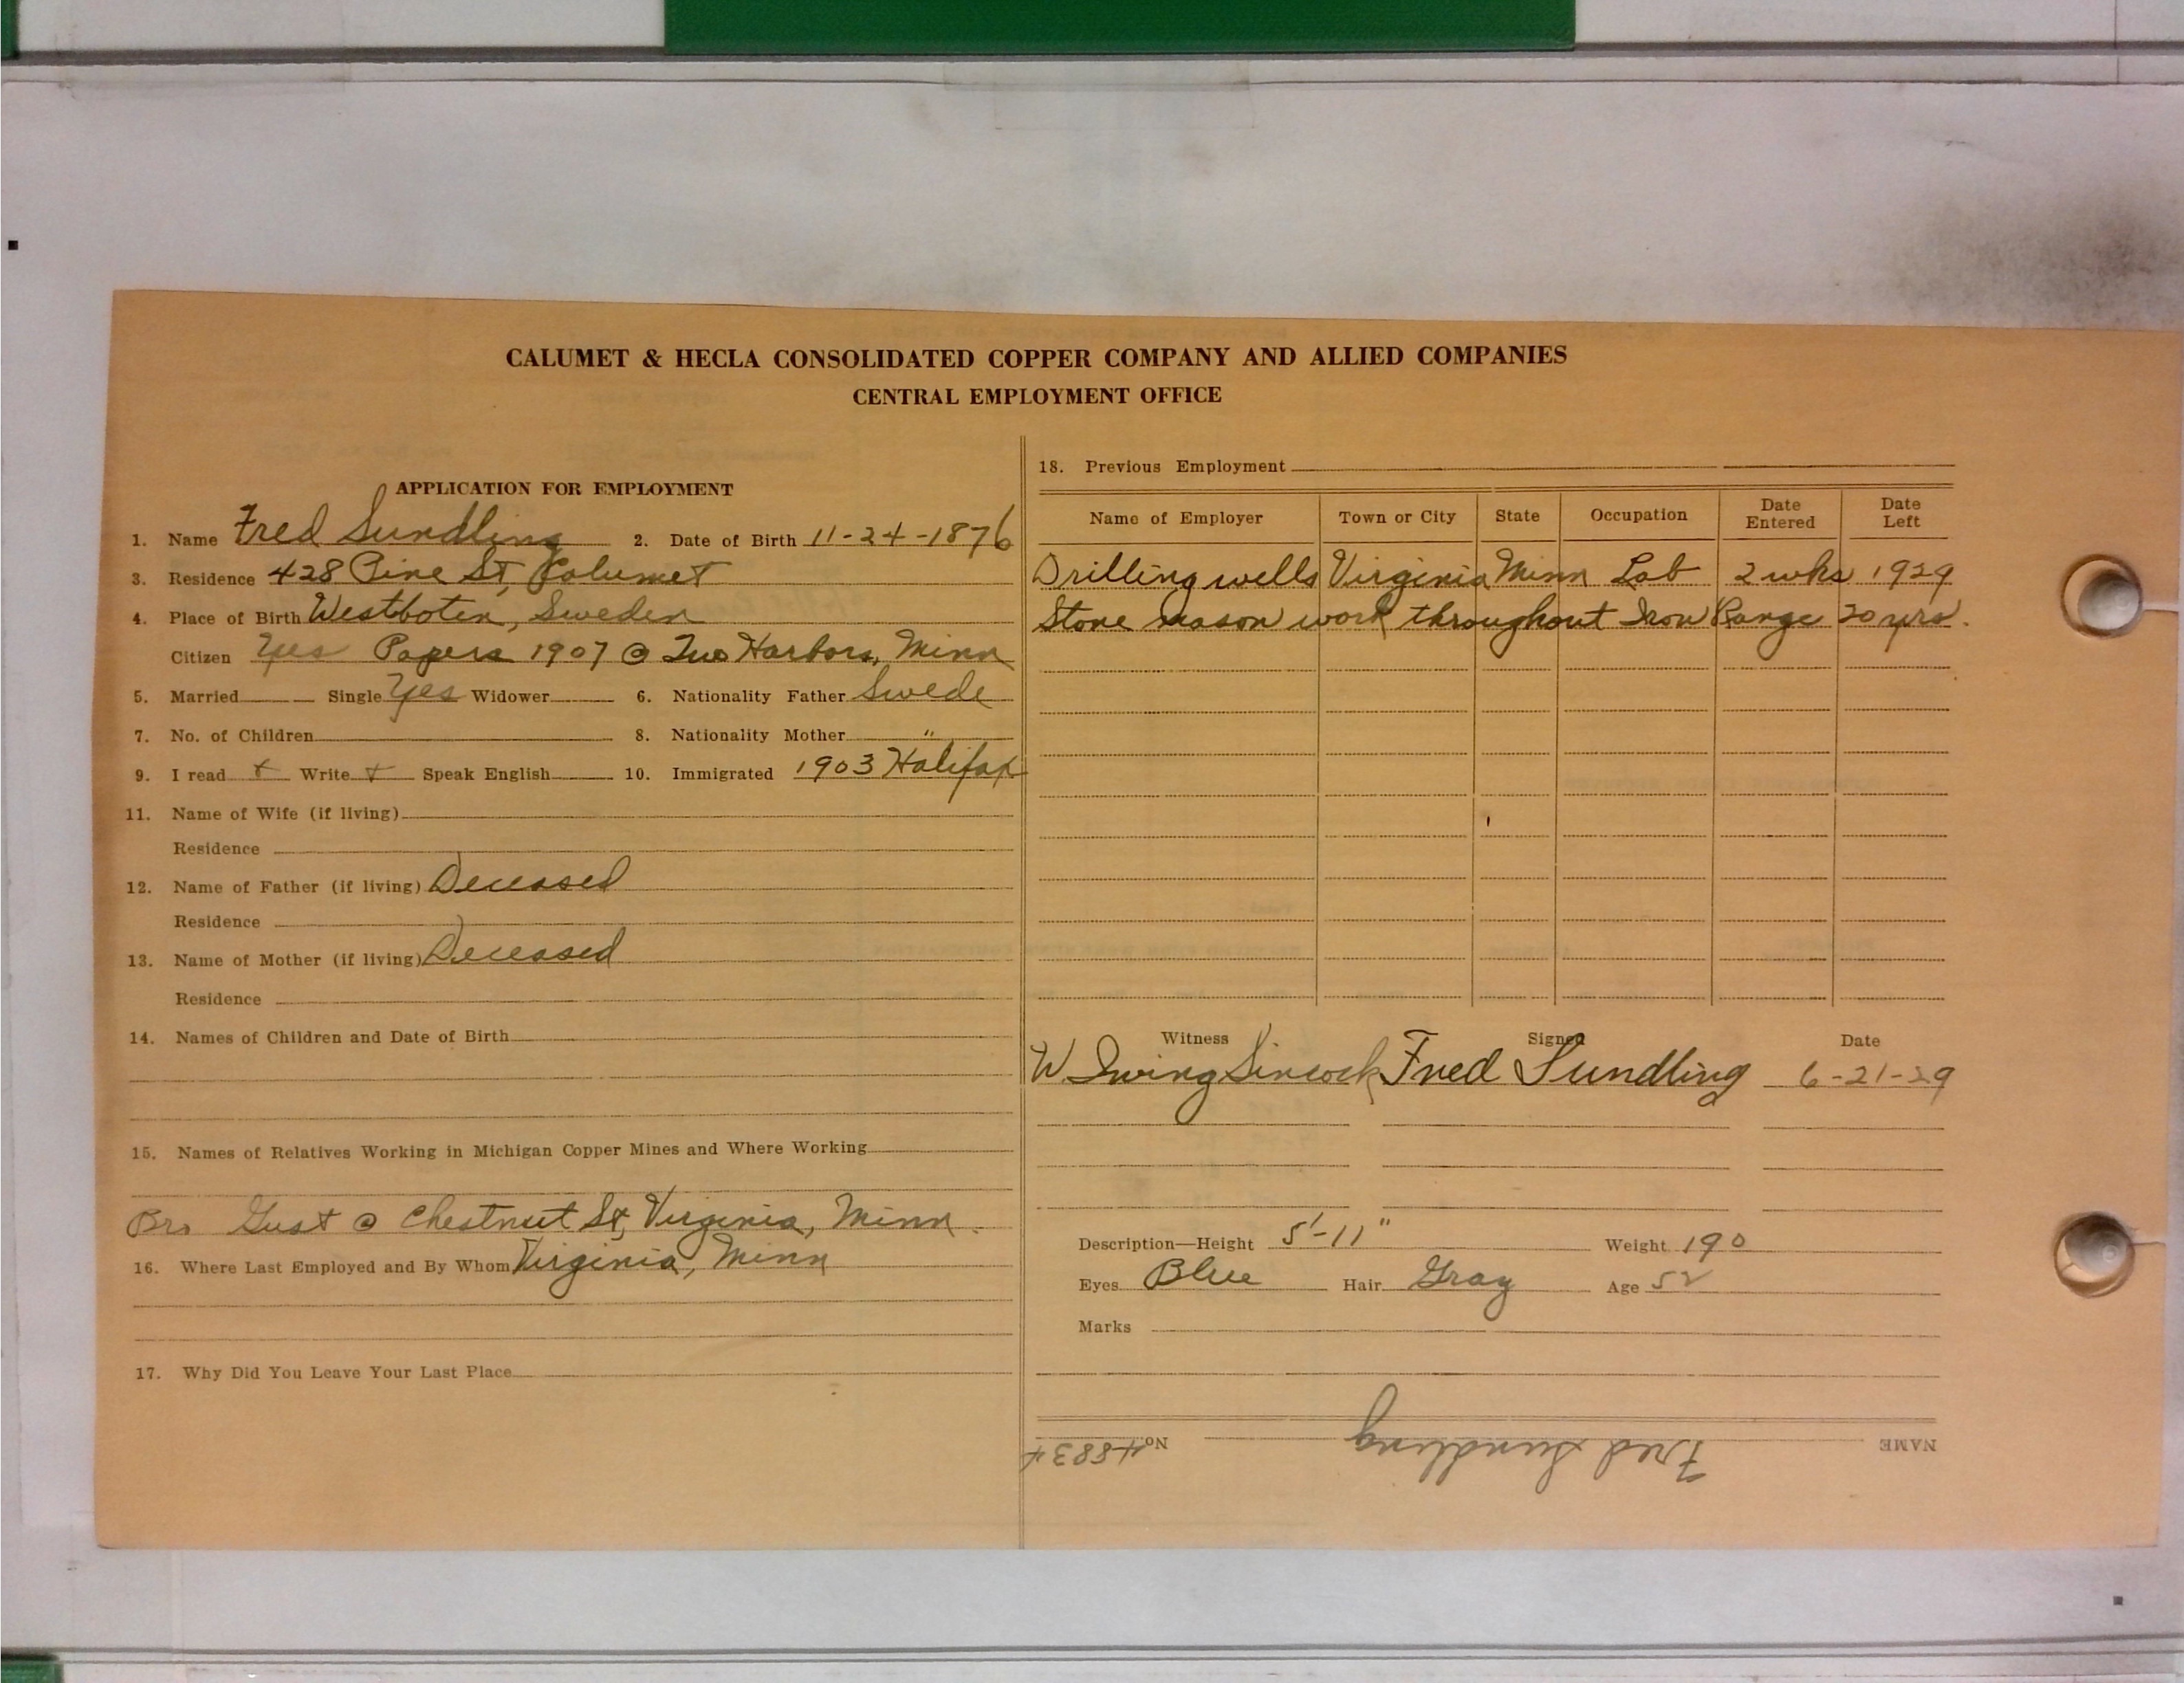 CALUMET & HECLA CONSOLIDATED COPPER COMPANY AND ALLIED COMPANIES
CENTRAL EMPLOYMENT OFFICE
APPLICATION FOR EMPLOYMENT
1. Name Fred Sundling 2. Date of Birth 11-24-1876
3. Residence 428 Pine St, Calumet
4. Place of Birth Westboten, Sweden
Citizen Yes Papers 1907 @ Two Harbors, Minn
5. Married Single Yes Widower 6. Nationality Father Swede
7. No. of Children 8. Nationality Mother "
9. I read + Write + Speak English 10. Immigrated 1903 Halifax
11. Name of Wife (if living)
Residence
12. Name of Father (if living) Deceased
Residence
13. Name of Mother (if living) Deceased
Residence
14. Names of Children and Date of Birth
15. Names of Relatives Working in Michigan Copper Mines and Where Working
Bro Gust @ Chestnut St, Virginia, Minn.
16. Where Last Employed and By Whom Virginia, Minn
17. Why Did You Leave Your Last Place
18. Previous Employment
Name of Employer Town or City State Occupation Date Entered Date Left
Drilling wells Virginia Minn Lab 2 wks 1929
Stone mason work throughout Iron Range 20 yrs.
Witness Signed Date
W Irving Sincock Fred Sundling 6-21-29
Description—Height 5'-11" Weight 190
Eyes Blue Hair Gray Age 52
Marks
NAME Fred Sundling No. 48834